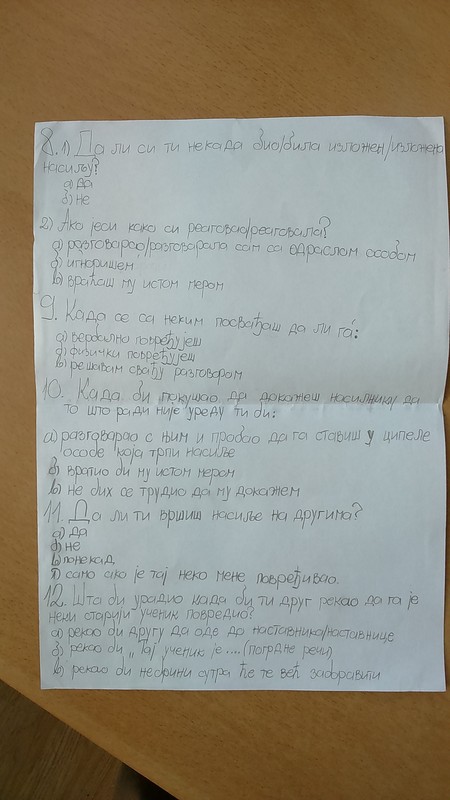 8. 1) Да ли си ти некада био/била изложен/изложена
насиљу?
а) да
б) не
2) Ако јеси како си реаговао/реаговала?
а) разговарао/разговарала сам са одраслом особом
б) игноришем
в) враћаш му истом мером
9. Када се са неким посвађаш да ли га:
а) вербално повређујеш
б) физички повређујеш
в) решавам свађу разговором
10. Када би покушао да докажеш насилнику да
то што ради није уреду ти би:
а) разговарао с њим и пробао да га ставиш у ципеле
особе која трпи насиље
б) вратио би му истом мером
в) не бих се трудио да му докажем
11. Да ли ти вршиш насиље на другима?
а) да
б) не
в) понекад
г) само ако је тај неко мене повређивао.
12. Шта би урадио када би ти друг рекао да га је
неки старији ученик повредио?
а) рекао би другу да оде до наставника/наставнице
б) рекао би „Тај ученик је.... (погрдне речи)
в) рекао би не брини сутра ће те већ заборавити